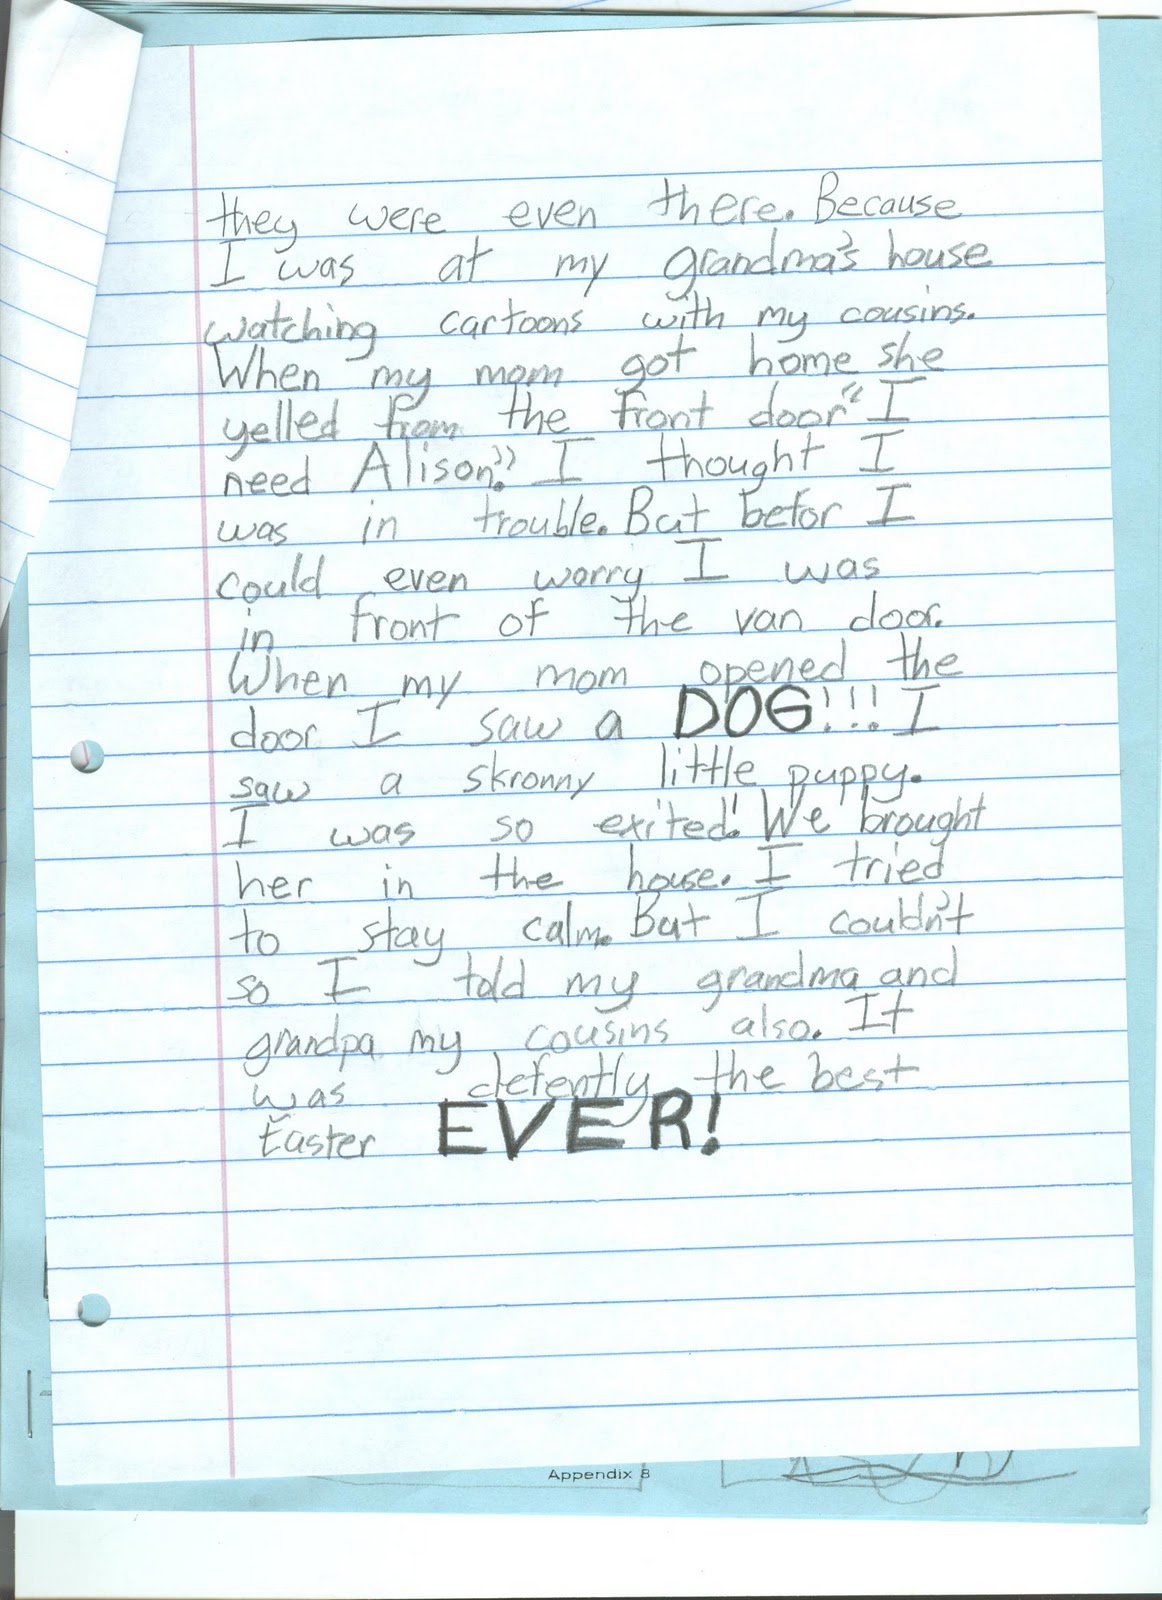 they were even there. Because
I was at my grandma's house
watching cartoons with my cousins.
When my mom got home she
yelled from the front door "I
need Alison." I thought I
was in trouble. But befor I
could even worry I was
in front of the van door.
When my mom opened the
door I saw a DOG!!! I
saw a skronny little puppy.
I was so exited! We brought
her in the house. I tried
to stay calm. But I couldn't
so I told my grandma and
grandpa my cousins also. It
was defently the best
Easter EVER!
Appendix B